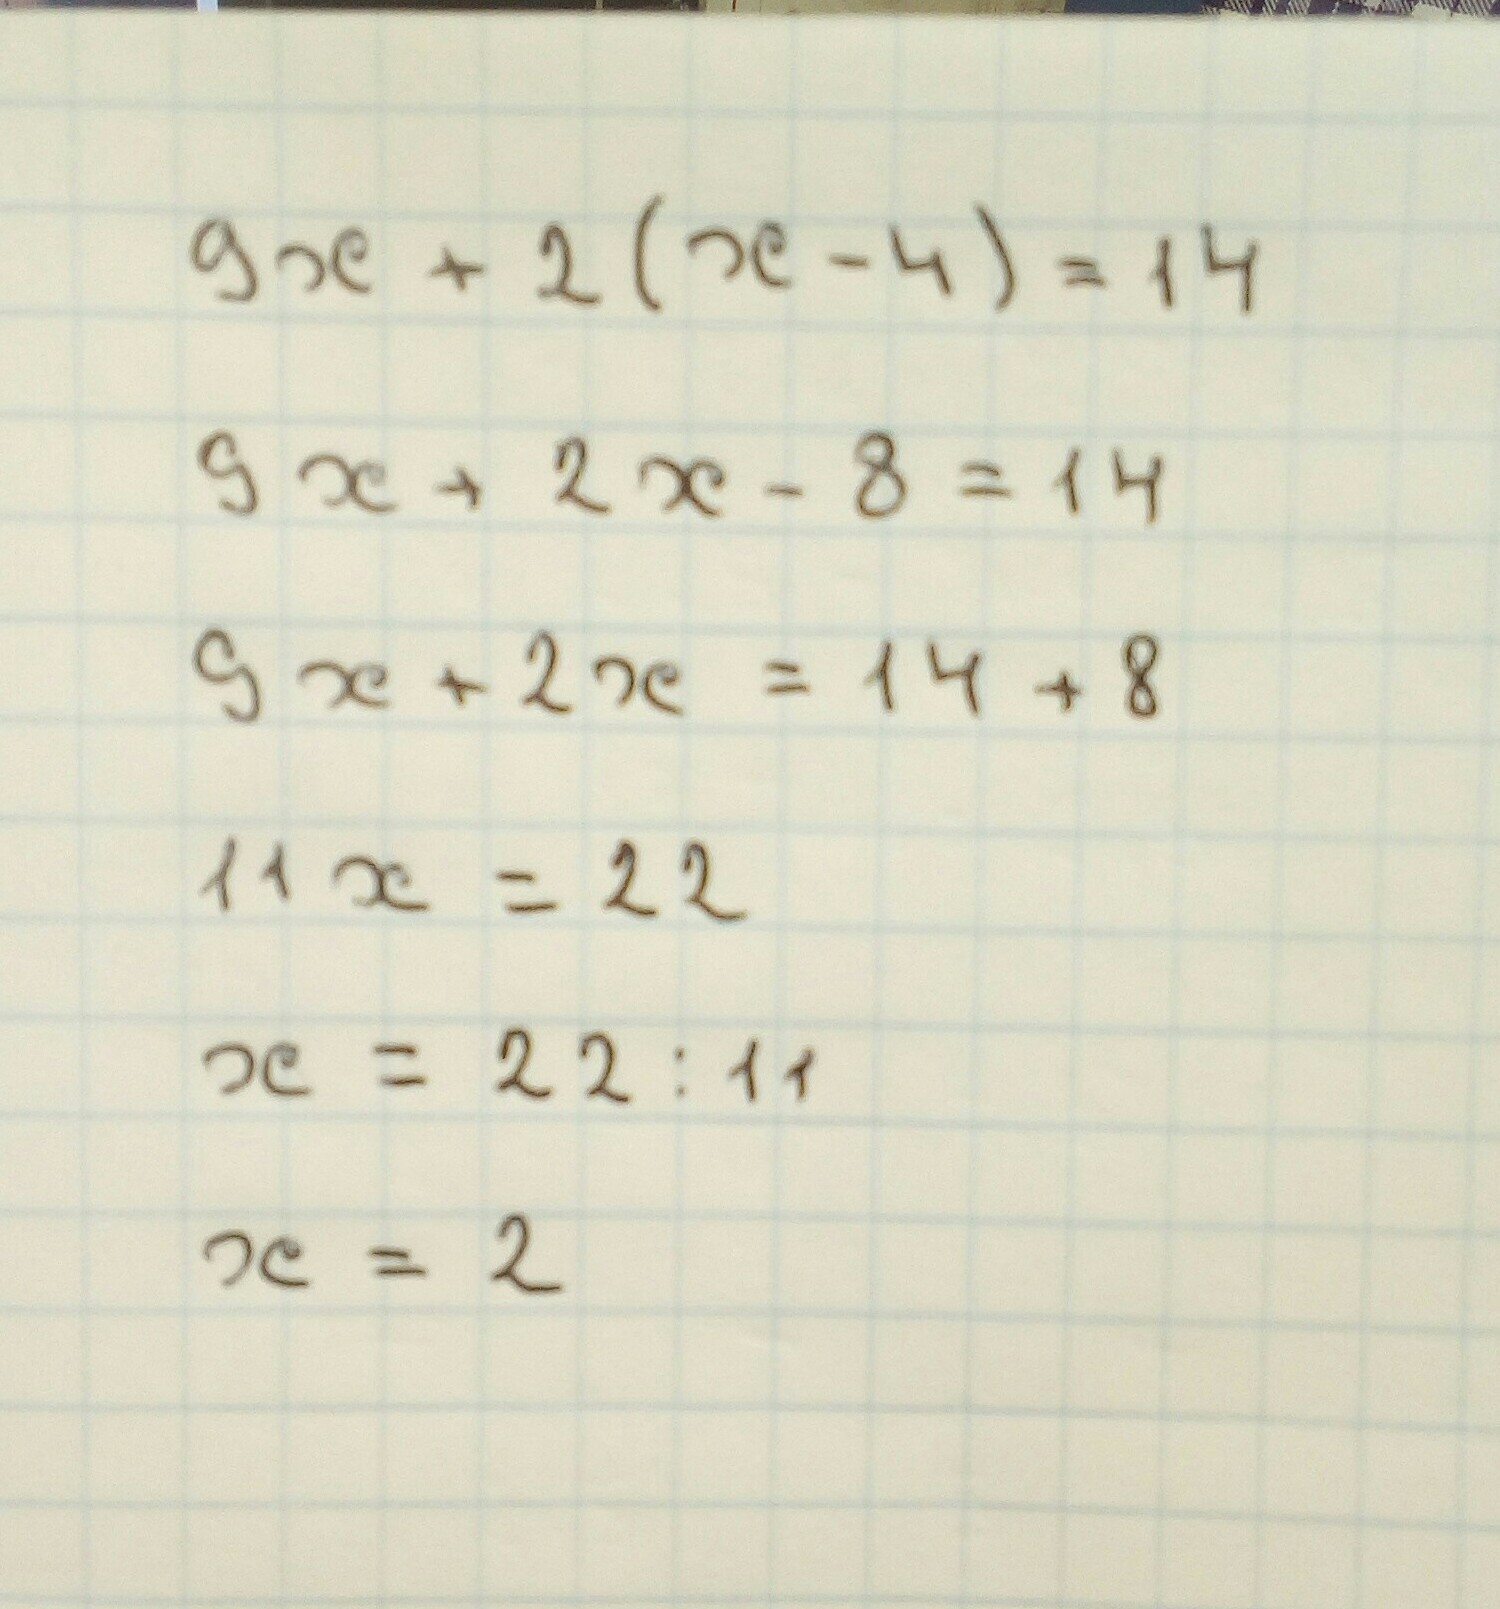 9x + 2(x - 4) = 14
9x + 2x - 8 = 14
9x + 2x = 14 + 8
11x = 22
x = 22 : 11
x = 2